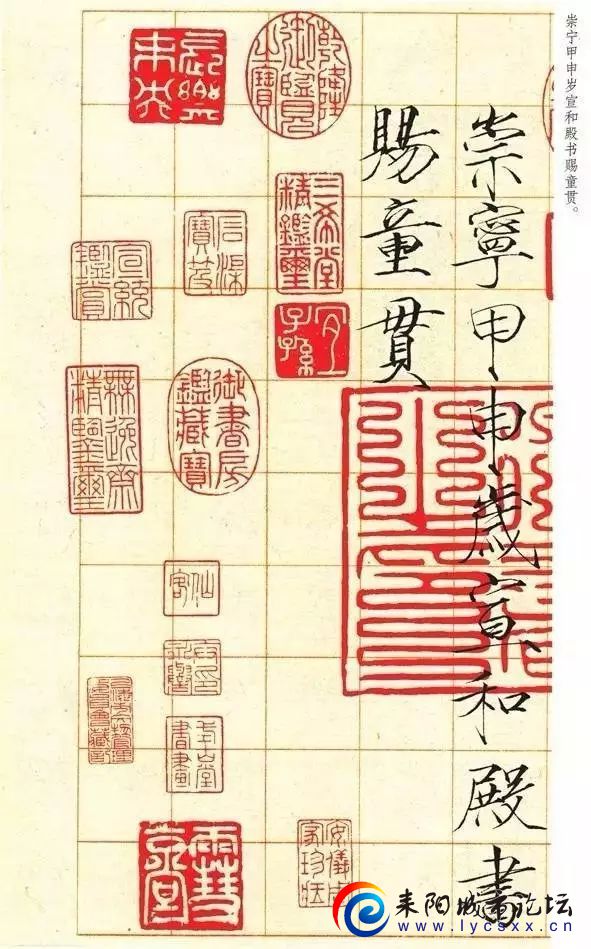 崇宁甲申岁宣和殿书赐童贯。
崇寧甲申歲宣和殿書
賜童貫
乾隆御覽之寶
三希堂精鑑璽
宜子孫
石渠寶笈
宣統鑑賞
御書房鑑藏寶
無逸齋精鑒璽
仙客
安儀周家珍藏
耒阳城市论坛
www.lycsxx.cn